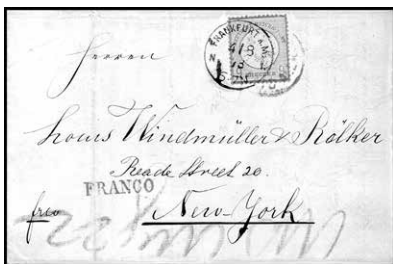 FRANKFURT A.M.
4/8
Herren
Louis Windmüller & Rölker
Reade Street 20.
FRANCO
frco
New-York